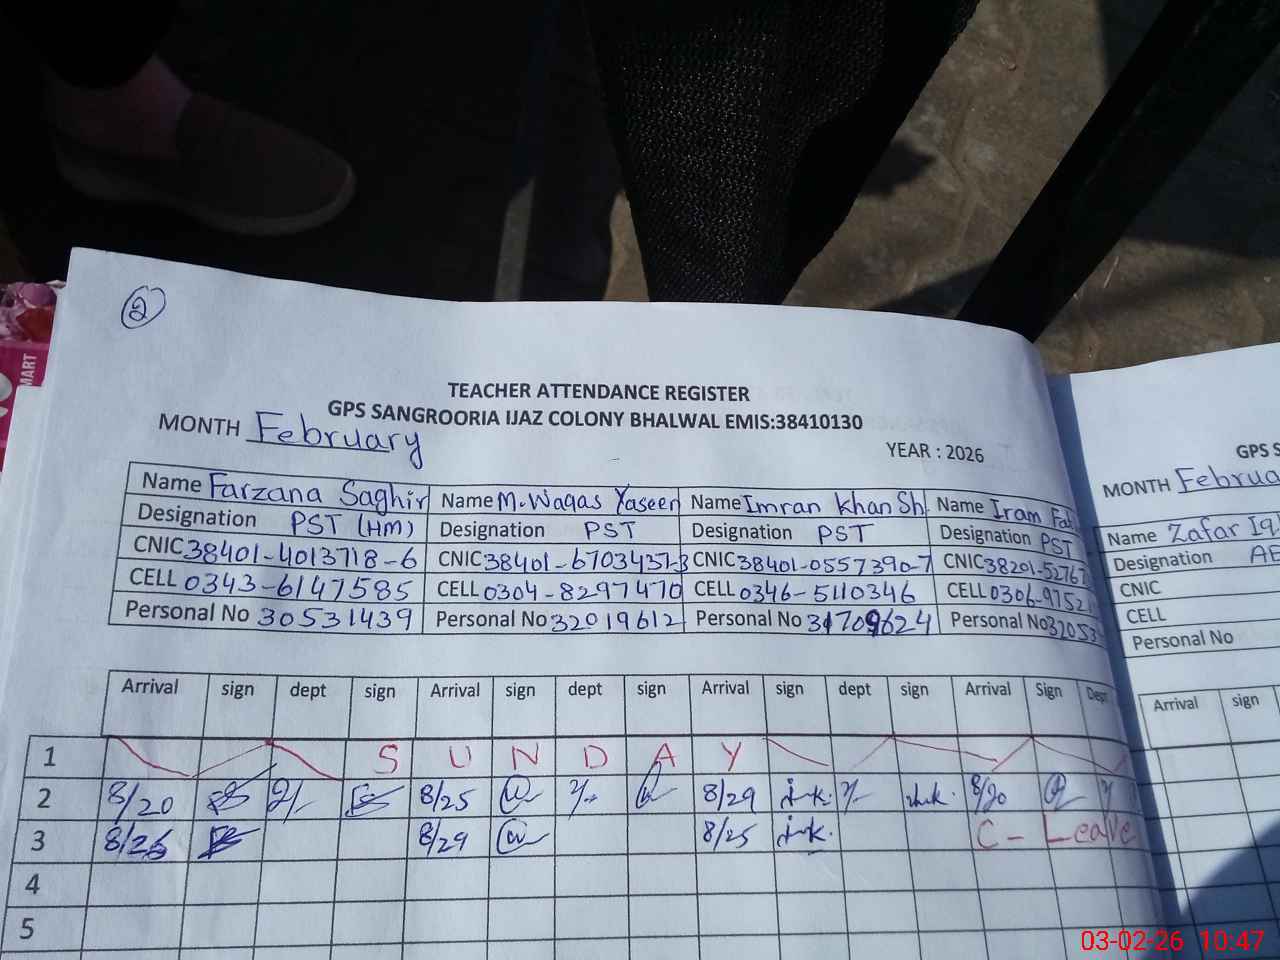 2
MART
TEACHER ATTENDANCE REGISTER
GPS SANGROORIA IJAZ COLONY BHALWAL EMIS:38410130
MONTH February
YEAR : 2026
Name Farzana Saghir Name M.Waqas Yaseen Name Imran Khan Sh Name Iram
Designation PST (HM) Designation PST Designation PST Designation PST
CNIC 38401-4013718-6 CNIC 38401-6703437-3 CNIC 38401-0557390-7 CNIC 38201-5276
CELL 0343-6147585 CELL 0304-8297470 CELL 0346-5110346 CELL 0306-9752
Personal No 30531439 Personal No 32019612 Personal No 31709624 Personal No 32053
Arrival sign dept sign Arrival sign dept sign Arrival sign dept sign Arrival Sign Dept
1 SUNDAY
2 8/20 8/25 8/29 8/20
3 8/25 8/29 8/25 C - Leave
4
5
GPS S
MONTH Februa
Name Zafar Iq
Designation AE
CNIC
CELL
Personal No
Arrival sign
03-02-26 10:47